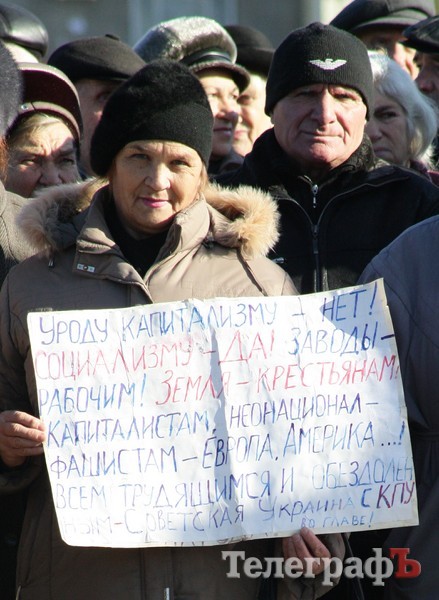 УРОДУ КАПИТАЛИЗМУ – НЕТ!
СОЦИАЛИЗМУ – ДА! ЗАВОДЫ –
РАБОЧИМ! ЗЕМЛЯ – КРЕСТЬЯНАМ!
КАПИТАЛИСТАМ, НЕОНАЦИОНАЛ-
ФАШИСТАМ – ЕВРОПА, АМЕРИКА...!
ВСЕМ ТРУДЯЩИМСЯ И ОБЕЗДОЛЕН
СОВЕТСКАЯ УКРАИНА С КПУ
ВО ГЛАВЕ!
ТЕЛЕГРАФЪ